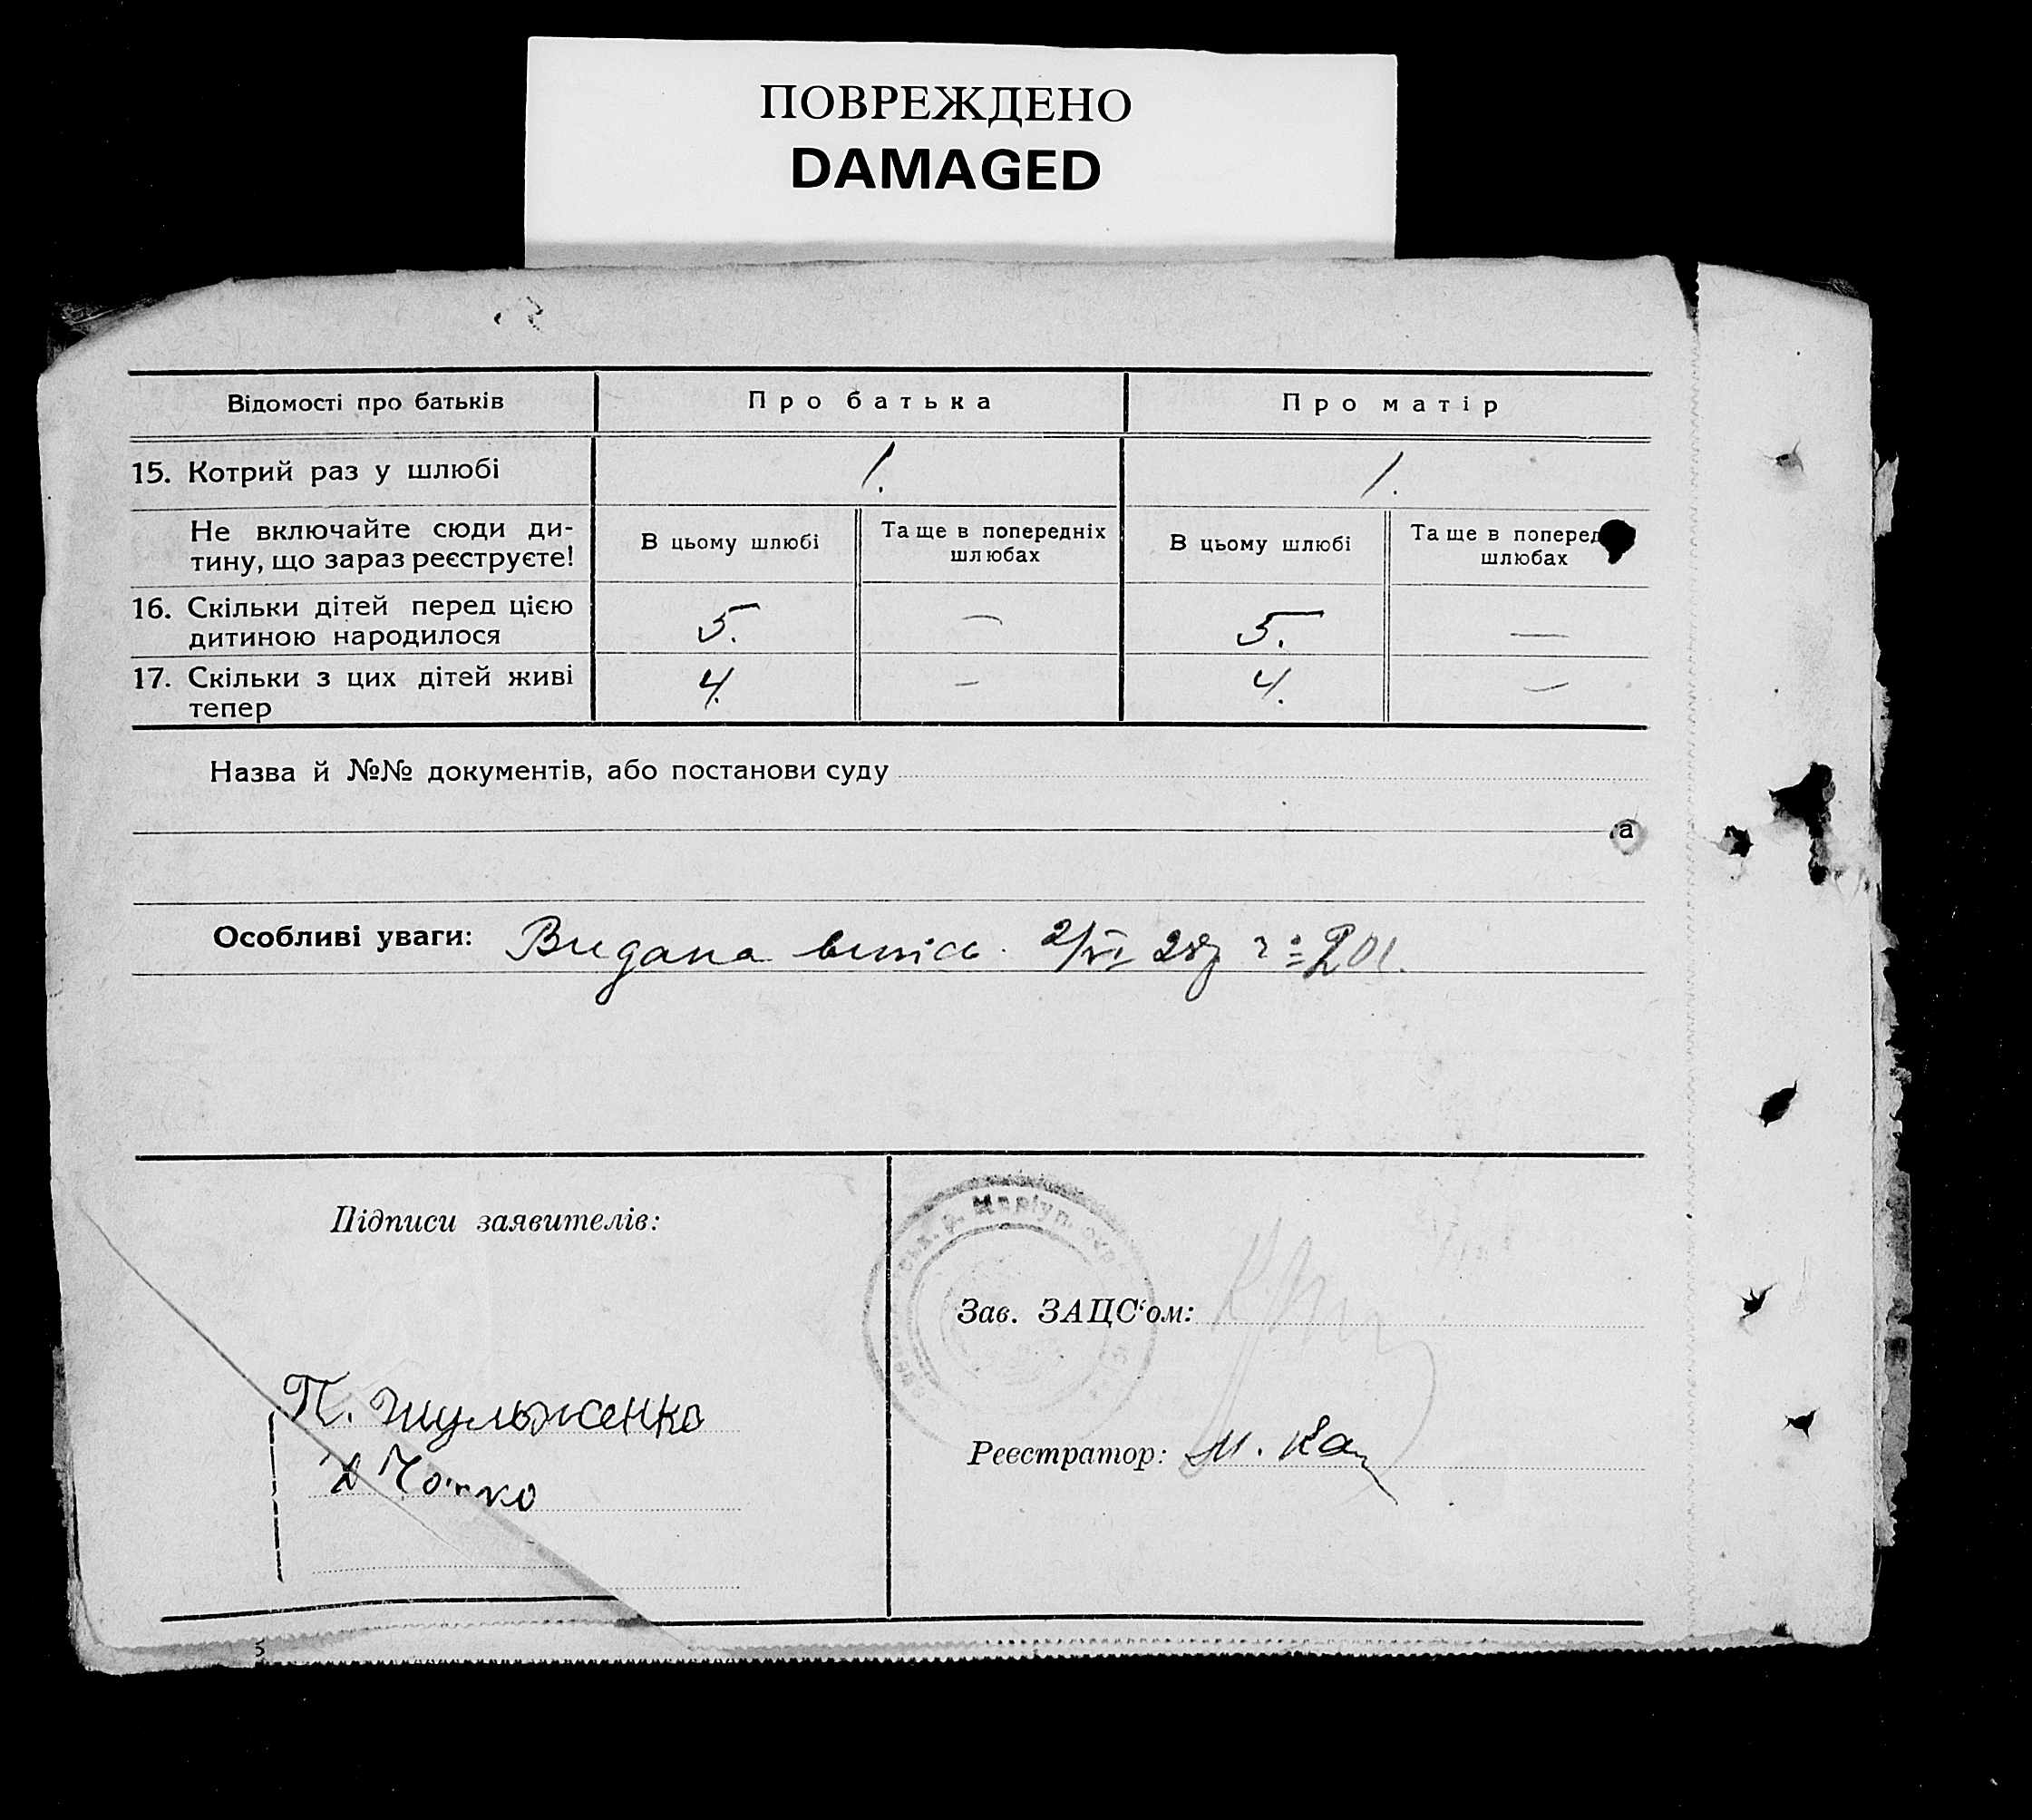 ПОВРЕЖДЕНО
DAMAGED
Відомості про батьків
Про батька
Про матір
15. Котрий раз у шлюбі
1.
1.
Не включайте сюди ди-
тину, що зараз реєструєте!
В цьому шлюбі
Та ще в попередніх
шлюбах
В цьому шлюбі
Та ще в поперед
шлюбах
16. Скільки дітей перед цією
дитиною народилося
5.
—
5.
—
17. Скільки з цих дітей живі
тепер
4.
—
4.
—
Назва й №№ документів, або постанови суду
а
Особливі уваги: Видана випись 2/VI 28р
Підписи заявителів:
Маріуп.
Зав. ЗАЦС‘ом:
П. Шульженко
Реєстратор: М.
5